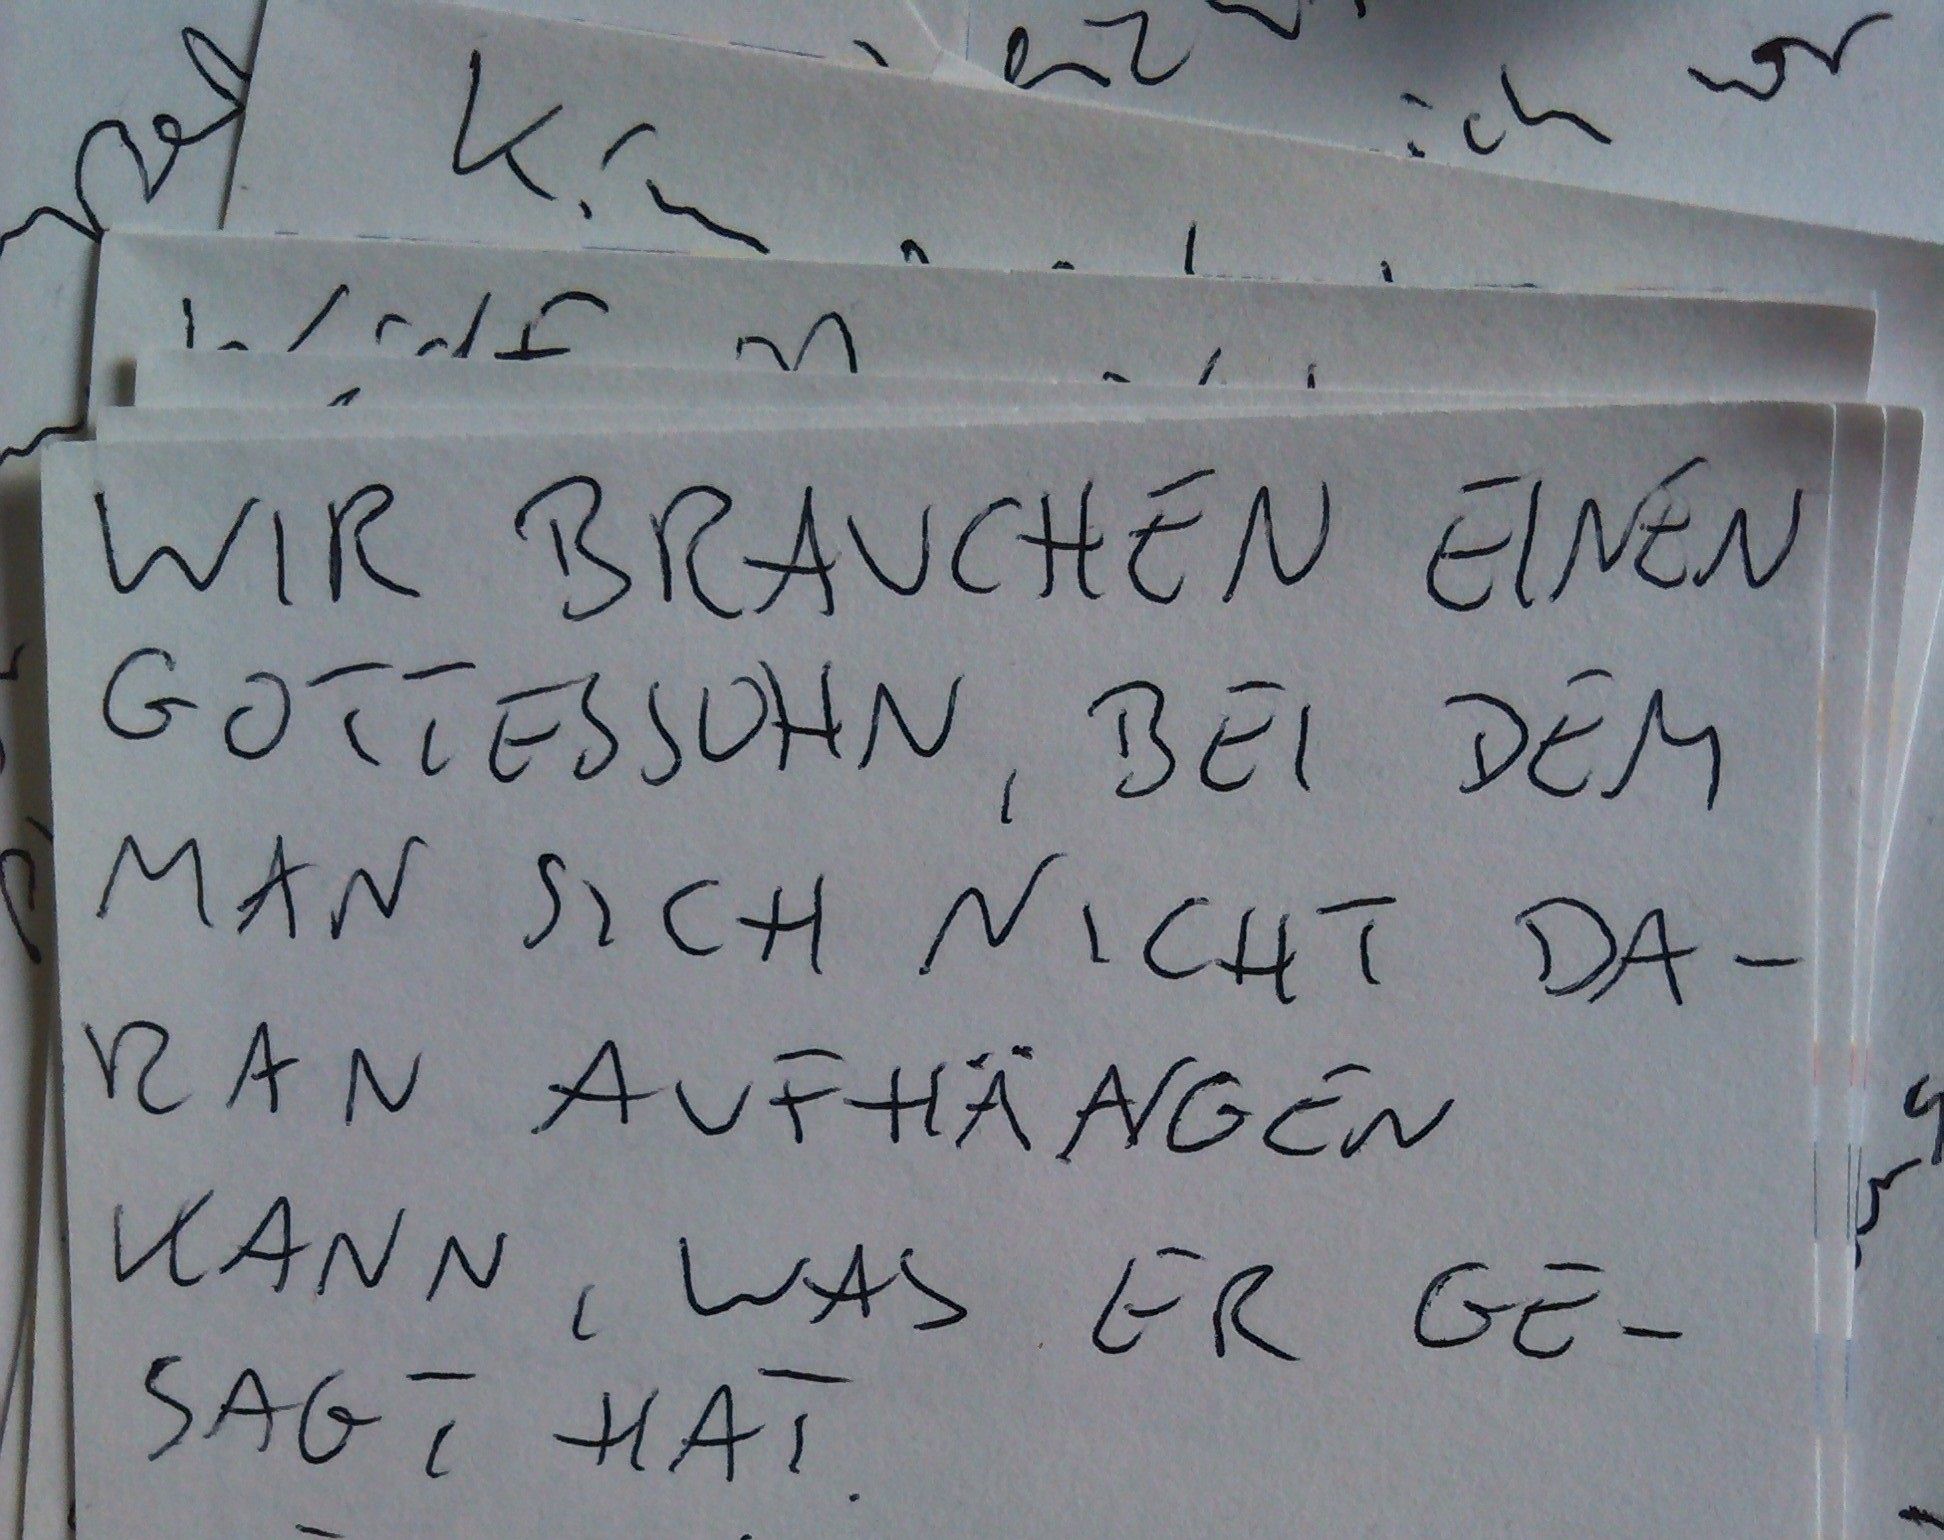 ich vor
WIR BRAUCHEN EINEN
GOTTESSOHN, BEI DEM
MAN SICH NICHT DA-
RAN AUFHÄNGEN
KANN, WAS ER GE-
SAGT HAT.